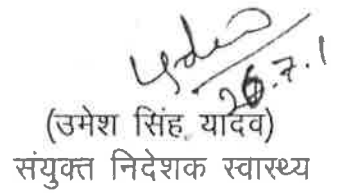 26.7.1
(उमेश सिंह यादव)
संयुक्त निदेशक स्वास्थ्य